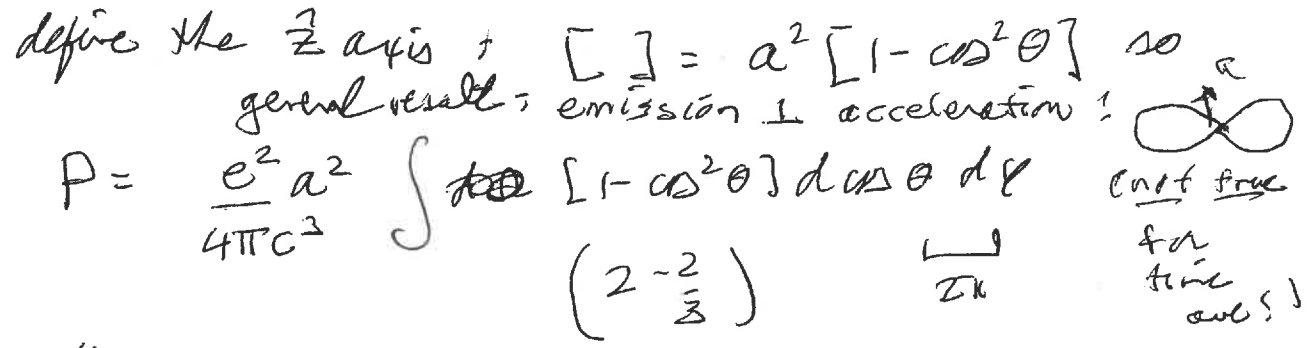 define the ẑ axis, [ ] = a² [1 - cos²θ] so
general result: emission ⊥ acceleration! a
P = e²/4πc³ a² ∫ [1 - cos²θ] d cos θ dφ (not true
(2 - 2/3) 2π for
time
ave!)